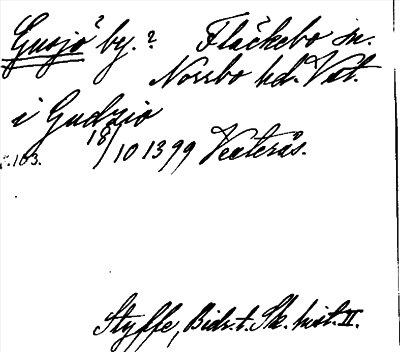 Gusjö? by.? Fläckebo sn.
Norrbo hd. Vstm.
i Gudzio
18/10 1399 Västerås.
s.103.
Styffe, Bidr. t. Sk. hist. II.